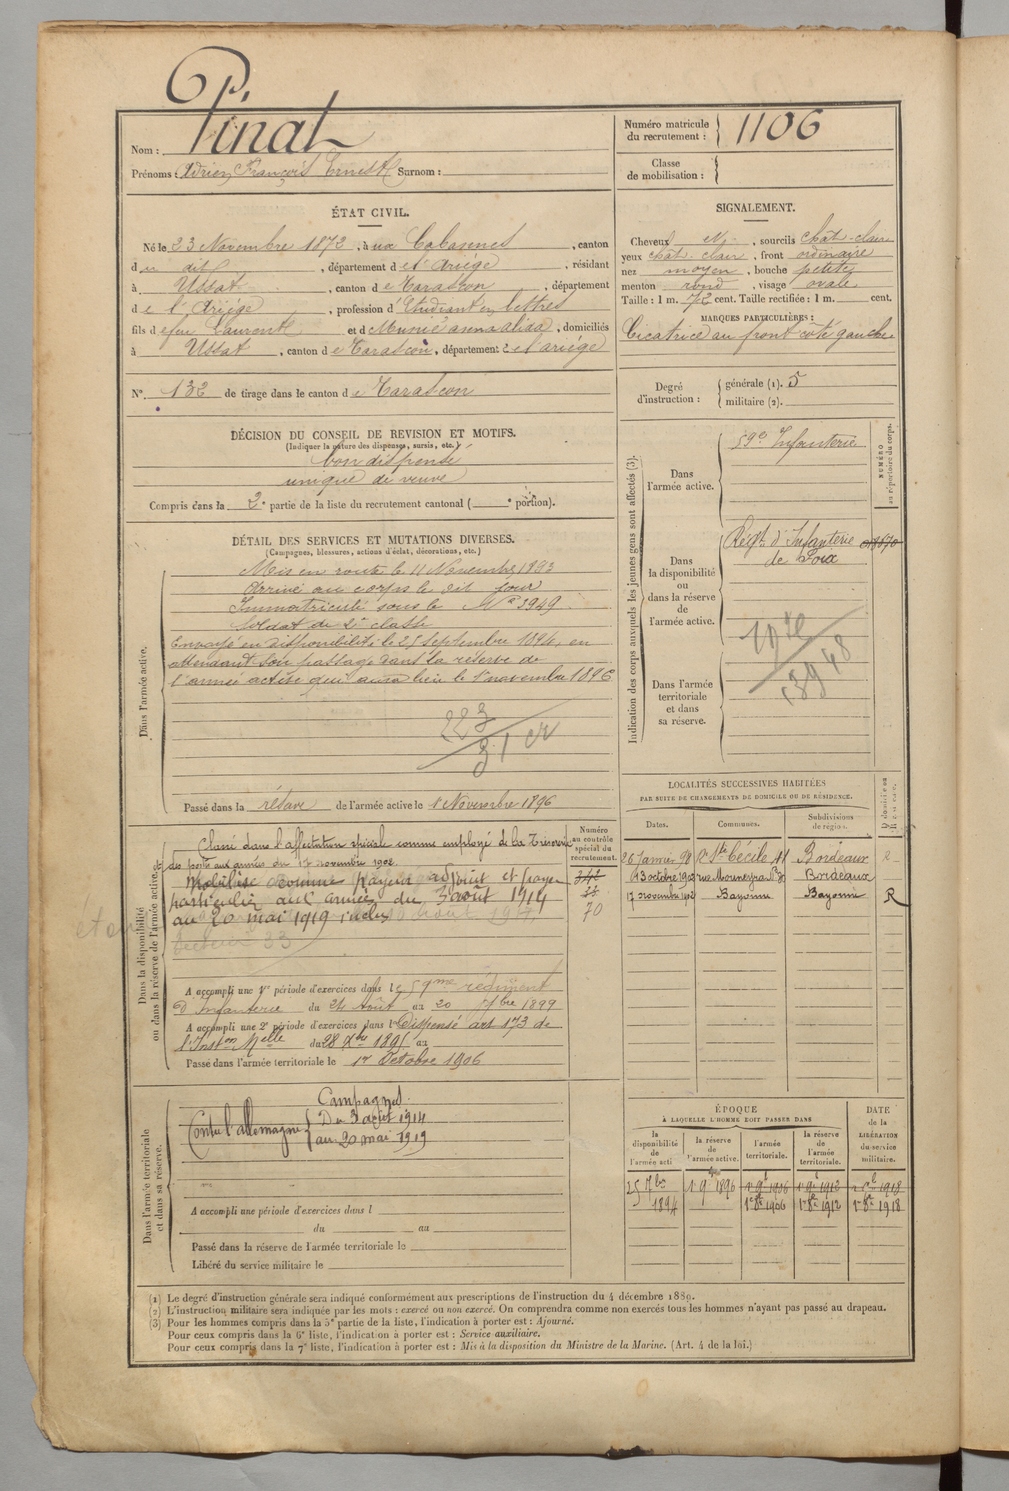 Nom : Pinat
Prénoms : Adrien François Ernest Surnom :
Numéro matricule du recrutement : 1106
Classe de mobilisation :
ÉTAT CIVIL.
Né le 23 Novembre 1872, à aux Cabannes, canton
du dit, département de l'Ariège, résidant
à Ussat, canton de Tarascon, département
de l'Ariège, profession d'Etudiant en lettres
fils de feu Laurent et de Munié anna aliaa, domiciliés
à Ussat, canton de Tarascon, département de l'ariège
N° 132 de tirage dans le canton de Tarascon
SIGNALEMENT.
Cheveux N, sourcils chât-clair
yeux chât. clair, front ordinaire
nez moyen, bouche petite
menton rond, visage ovale
Taille : 1 m. 72 cent. Taille rectifiée : 1 m. cent.
MARQUES PARTICULIÈRES :
Cicatrice au front côté gauche
Degré d'instruction : générale (1). 5
militaire (2).
DÉCISION DU CONSEIL DE REVISION ET MOTIFS.
(Indiquer la nature des dispenses, sursis, etc.)
bon dispensé
unique de veuve
Compris dans la 2e partie de la liste du recrutement cantonal ( e portion).
DÉTAIL DES SERVICES ET MUTATIONS DIVERSES.
(Campagnes, blessures, actions d'éclat, décorations, etc.)
Dans l'armée active.
Mis en route le 11 Novembre 1893
Arrivé au corps le dit jour
Immatriculé sous le No 3949
Soldat de 2e classe
Envoyé en disponibilité le 25 Septembre 1894, en
attendant son passage dans la réserve de
l'armée active qui aura lieu le 1er novembre 1896
223
31
Passé dans la réserve de l'armée active le 1 Novembre 1896
Indication des corps auxquels les jeunes gens sont affectés (3).
NUMÉRO au répertoire du corps.
Dans l'armée active.
59e Infanterie
Dans la disponibilité ou dans la réserve de l'armée active.
Régt d'Infanterie
de Foix
Dans l'armée territoriale et dans sa réserve.
Dans la disponibilité ou dans la réserve de l'armée active.
Classé dans l'affectation spéciale comme employé de la Trésorerie
et des postes aux armées du 17 novembre 1902
Mobilisé comme Payeur adjoint et payeur
particulier aux armées du 3 août 1914
au 20 mai 1919 inclus
Secteur 33
Numéro au contrôle spécial du recrutement.
342
70
A accompli une 1re période d'exercices dans le 59me régiment
d'Infanterie du 24 Août au 20 7bre 1899
A accompli une 2e période d'exercices dans l Dispensé art 173 de
l'Inston Melle du 28 Xbre 1895 au
Passé dans l'armée territoriale le 1er Octobre 1906
LOCALITÉS SUCCESSIVES HABITÉES
PAR SUITE DE CHANGEMENTS DE DOMICILE OU DE RÉSIDENCE.
Dates. Communes. Subdivisions de région.
26 Janvier 98 Rue Ste Cécile 41 Bordeaux R
13 octobre 1902 rue Mouneyra Bordeaux
17 novembre 1902 Bayonne Bayonne R
Dans l'armée territoriale et dans sa réserve.
Campagnes.
Contre l'allemagne { Du 3 août 1914
au 20 mai 1919
A accompli une période d'exercices dans l
du au
Passé dans la réserve de l'armée territoriale le
Libéré du service militaire le
ÉPOQUE
À LAQUELLE L'HOMME DOIT PASSER DANS
DATE de la LIBÉRATION du service militaire.
la disponibilité de l'armée acti
la réserve de l'armée active.
l'armée territoriale.
la réserve de l'armée territoriale.
25 7bre 1er 9bre 1896 1er 9bre 1906 1er 9bre 1912 1er 9bre 1918
1894 1er 8bre 1906 1er 8bre 1912 1er 8bre 1918
(1) Le degré d'instruction générale sera indiqué conformément aux prescriptions de l'instruction du 4 décembre 1889.
(2) L'instruction militaire sera indiquée par les mots : exercé ou non exercé. On comprendra comme non exercés tous les hommes n'ayant pas passé au drapeau.
(3) Pour les hommes compris dans la 5e partie de la liste, l'indication à porter est : Ajourné.
Pour ceux compris dans la 6e liste, l'indication à porter est : Service auxiliaire.
Pour ceux compris dans la 7e liste, l'indication à porter est : Mis à la disposition du Ministre de la Marine. (Art. 4 de la loi.)